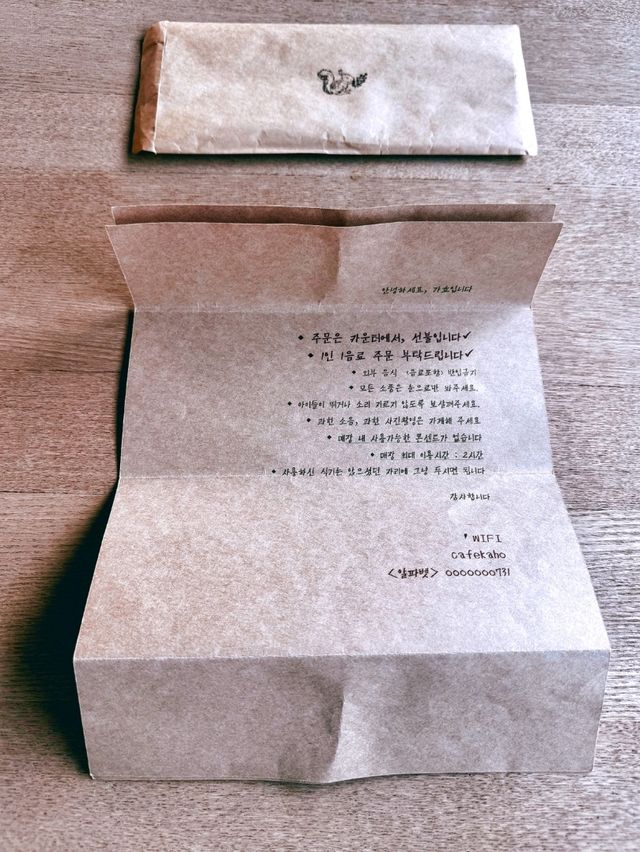 안녕하세요, 가호입니다
◆ 주문은 카운터에서, 선불입니다✓
◆ 1인 1음료 주문 부탁드립니다✓
◆ 외부 음식 (음료포함) 반입금지
◆ 모든 소품은 눈으로만 봐주세요.
◆ 아이들이 뛰거나 소리 지르지 않도록 보살펴주세요.
◆ 과한 소음, 과한 사진촬영은 자제해 주세요
◆ 매장 내 사용가능한 콘센트가 없습니다
◆ 매장 최대 이용시간 : 2시간
◆ 사용하신 식기는 앉으셨던 자리에 그냥 두시면 됩니다
감사합니다
' WIFI
cafekaho
<알파벳> ooooooo731